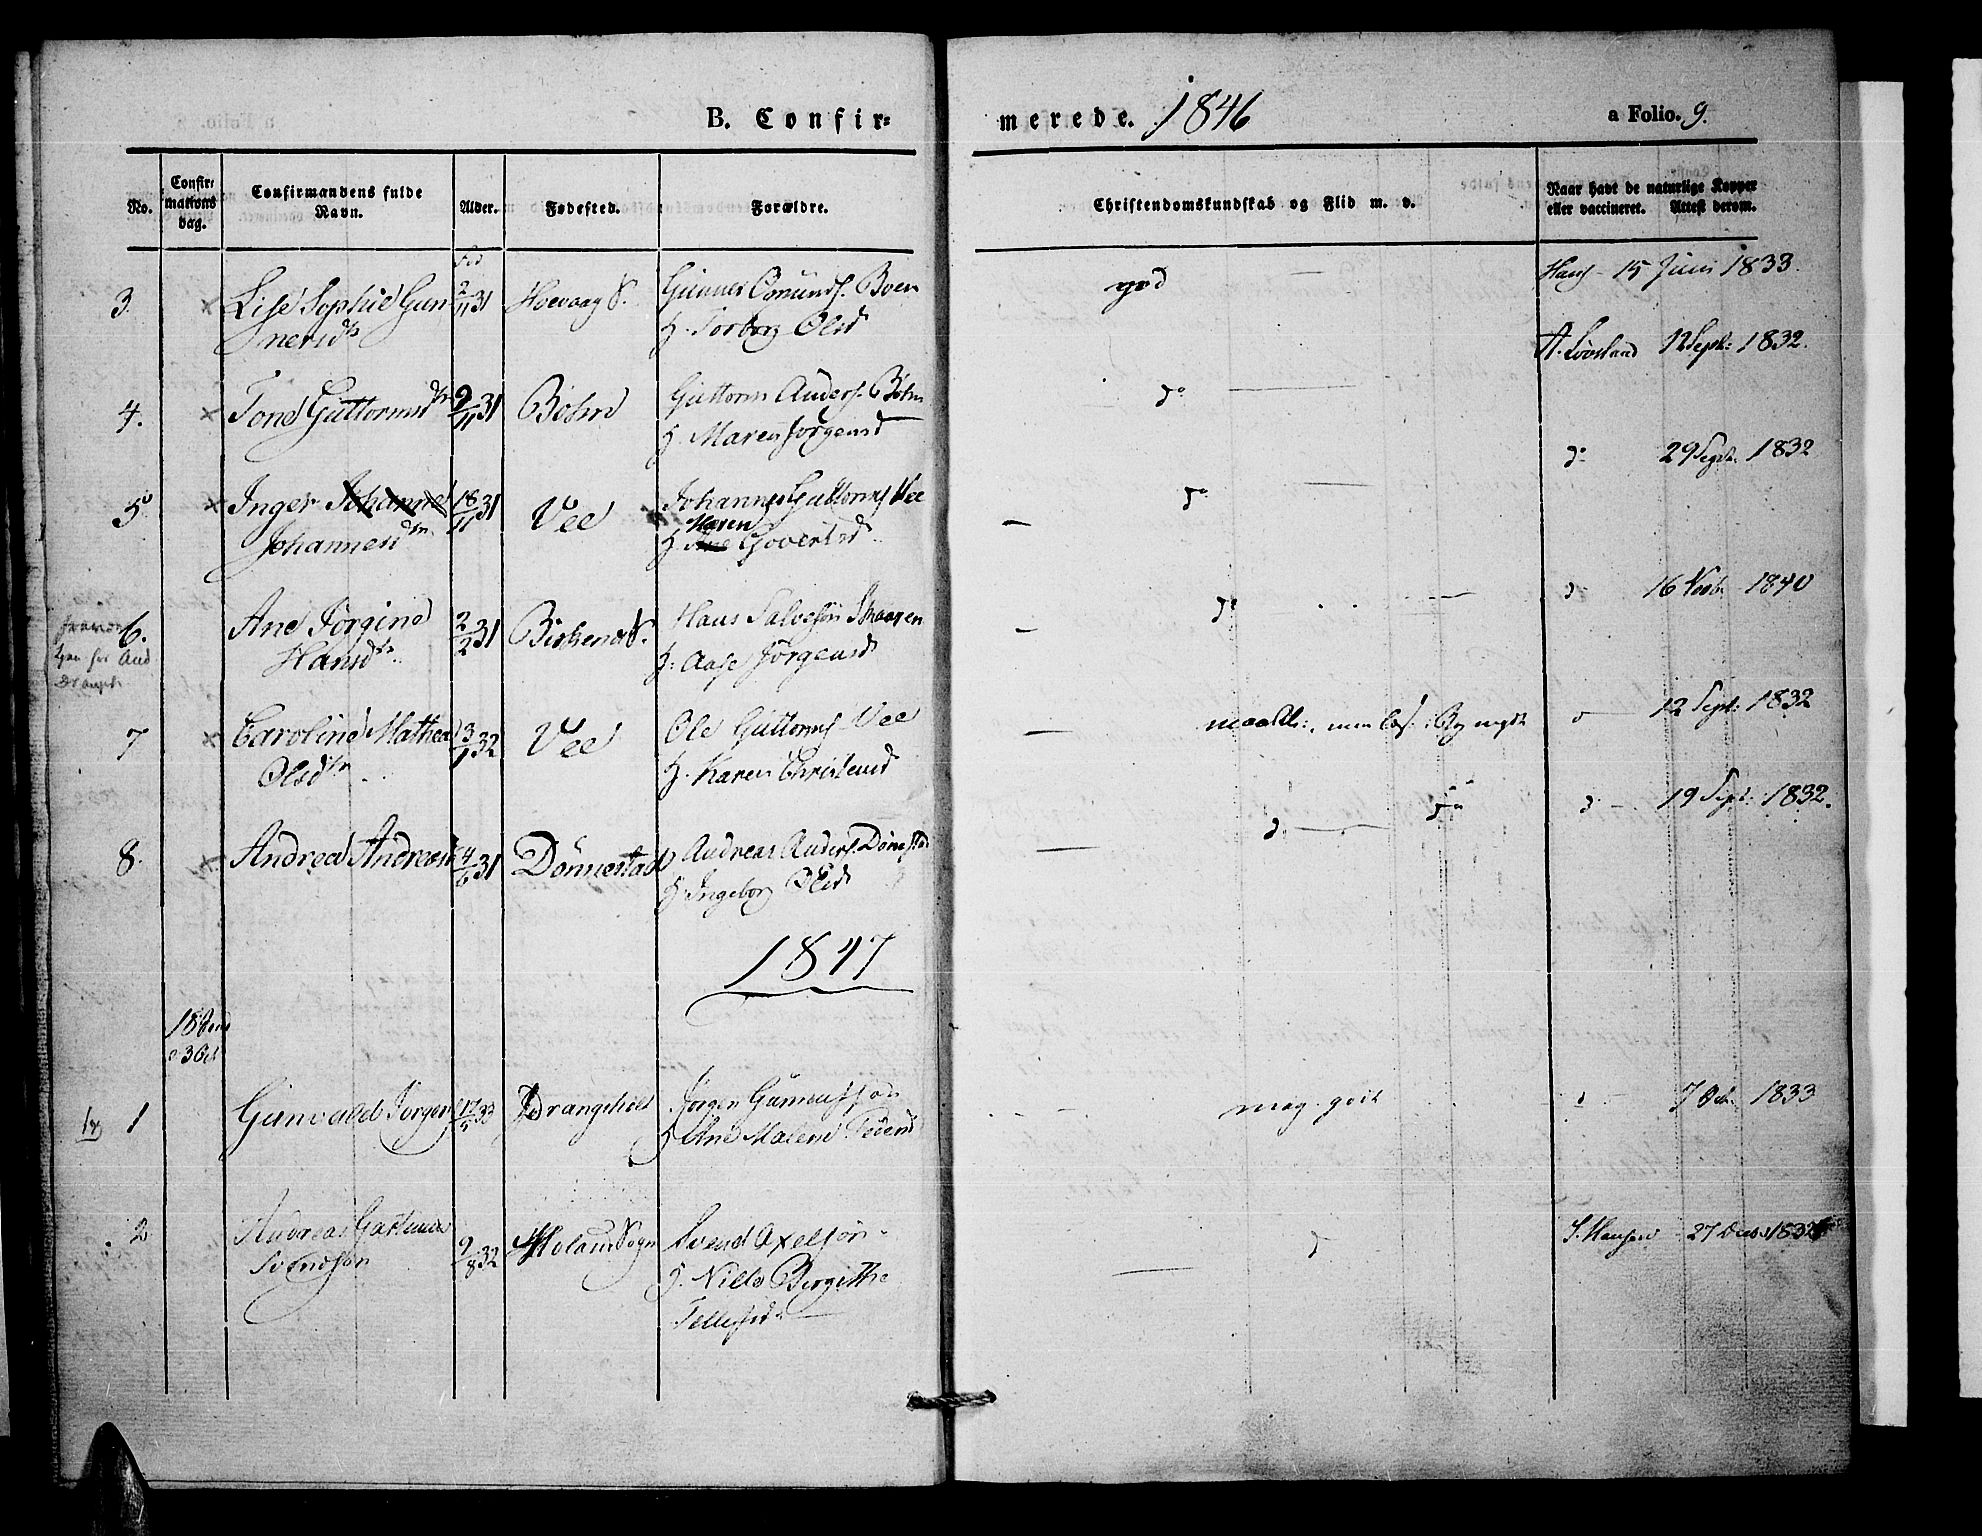 B. Confir=
merede. 1846
a Folio. 9.
No.
Confir=
mations
dag.
Confirmandens fulde
Navn.
Alder.
Fødested.
Forældre.
Christendomskundskab og Flid m. v.
Naar havt de naturlige Kopper
eller vaccineret. Attest derom.
3. × Lise Sophie Gun
nersdtr
2/11 31
Hoevaag S.
Gunner Omunds. Boen
H. Torborg Olsd
god
Hans 15 Juni 1833.
4. × Tone Guttormsdtr 9/11 31 Bøhn
Guttorm Anders. Bøhn
H. Maren Jørgensd
do
A. Lövsland 12 Sept: 1832.
5 × Inger Johanne
Johannesdtr
18/11 31
Vee
Johannes Guttorms Vee
Karen
H. Ane Govertsd
do
do 29 Sept. 1832
6.
Ane Jörgine
Hansdtr
2/2 31
Birkenes S.
Hans Salvesön
H. Aase Jörgensd
do
d 16 Novb 1840
7 × Caroline Mathea
Olsdtr
13/1 32
Vee
Ole Guttorms Vee
H. Karen Christensd
12 Sept. 1832
8. × Andrea Andreas 4/6 31 Dönnestad
Andreas Anders. Dönestad
H Ingeborg Olsd
d.
d. 19 Sept: 1832.
1847
3 Oct
1 Gunvald Jörgens 17/5 33 Drangsholt
Jörgen Gunnersson
H Ane Malene
mag. godt
7 Oct. 1833
2 Andreas
Svendsön
9/8 32
Svend Axelsön
H. Nille Birgithe
Tellefsd
d
S. Hansen 27 1832